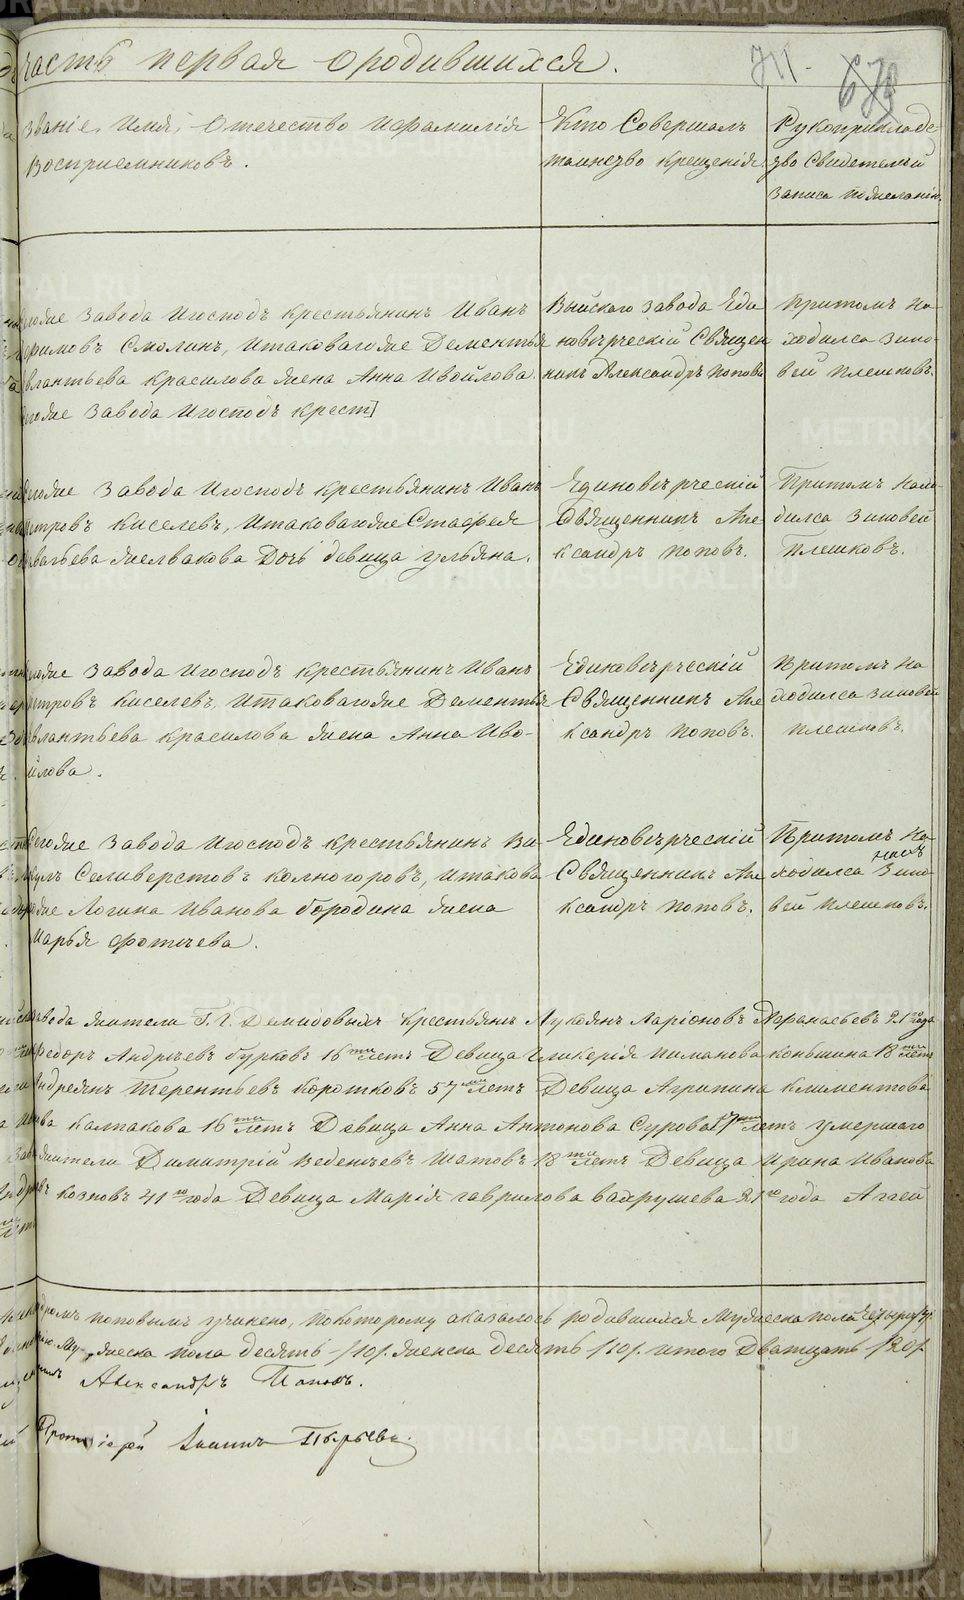 Часть первая о родившихся.
711.
Званіе, Имя, Отечество и фамилія
Восприемниковъ.
Кто Совершалъ
таинство крещенія
Рукоприкладс
тво Свидетелей
записа по желанію.
Завода Игосподъ крестьянинъ Иванъ
Смолинъ, итаковагоже Дементья
красилова жена Анна Ивойлова.
Завода Игосподъ крест]
Выйскаго завода Еди
новѣрческій Священ
никъ Александръ Поповъ
Притомъ на
ходился Зино
вей Плешковъ.
Завода Игосподъ крестьянинъ Иванъ
Киселевъ, итаковагоже
Дочь девица Ульяна.
Единовѣрческій
Священникъ Але
ксандръ Поповъ.
Притомъ нахо
дился Зиновей
Плешковъ.
Завода Игосподъ крестьянинъ Иванъ
Киселевъ, итаковагоже Дементья
красилова жена Анна Иво-
йлова.
Единовѣрческій
Священникъ Але
ксандръ Поповъ.
Притомъ на
ходился Зиновей
Плешковъ.
Завода Игосподъ крестьянинъ Ви
Селиверстовъ колногоровъ, итакова
Логина Иванова бородина жена
Марья Фотиева.
Единовѣрческій
Священникъ Але
ксандръ Поповъ.
Притомъ на
ходился Зино
вей Плешковъ.
завода жители Г.Г. Демидовыхъ крестьянъ Лукоянъ Ларіоновъ Афанасьевъ 21го года
Федоръ Андреевъ бурковъ 16ти летъ Девица Гликерія коньшина 18ти летъ
Андреянъ Терентьевъ коротковъ 57ми летъ Девица Агрипина климентова
калпакова 16ти летъ Девица Анна Антонова Сурова 17ти летъ умершаго
жители Димитрій Веденеевъ Шатовъ 18ти летъ Девица Ирина Иванова
козновъ 41го года Девица Марія гаврилова вахрушева 21го года Аггей
Поповымъ учинено, покоторому оказалось родившихся Мужеска пола
Мужеска пола десять /10/. женска десять /10/. итого Дватцать /20/.
Александръ Поповъ.
Протоіерей Іоаннъ Пырьевъ.
METRIKI.GASO-URAL.RU